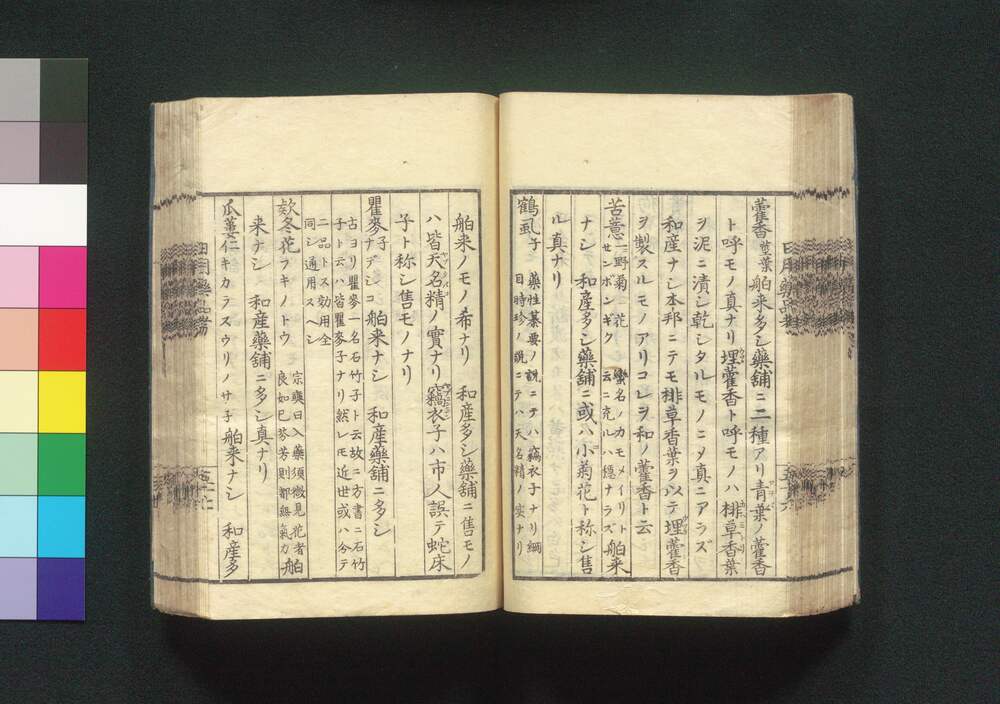 藿香 葉 舶来多シ藥舗ニ二種アリ青葉ノ藿香
ト呼モノ真ナリ埋藿香ト呼モノハ排草香葉
ヲ泥ニ漬シ乾シタルモノニメ真ニアラズ
和産ナシ本邦ニテモ排草香葉ヲ以テ埋藿香
ヲ製スルモノアリコレヲ和ノ藿香ト云
苦薏 一野菊 花 蠻名ノカモメイリト
センボンギク 云ニ充ルハ穏ナラズ 舶来
ナシ 和産多シ藥舗ニ或ハ小菊花ト称シ售
ル真ナリ
鶴虱子 藥性纂要ノ説ニテハ竊衣子ナリ綱
目時珍ノ説ニテハ天名精ノ実ナリ
舶来ノモノ希ナリ 和産多シ藥舗ニ售モノ
ハ皆天名精ノ實ナリ竊衣子ハ市人誤テ蛇床
子ト称シ售モノナリ
瞿麥子 ナデシコ 舶来ナシ 和産藥舗ニ多シ
古ヨリ瞿麥一名石竹子ト云故ニ方書ニ石竹
子ト云ハ皆瞿麥子ナリ然レモ近世或ハ分テ
二品トス効用全
同シ通用スヘシ
欵冬花 フキノトウ 宗奭曰入藥須微見花者
良如已芬芳則都無氣力 舶
来ナシ 和産藥舗ニ多シ真ナリ
瓜蔞仁 キカラスウリノサ子 舶来ナシ 和産多